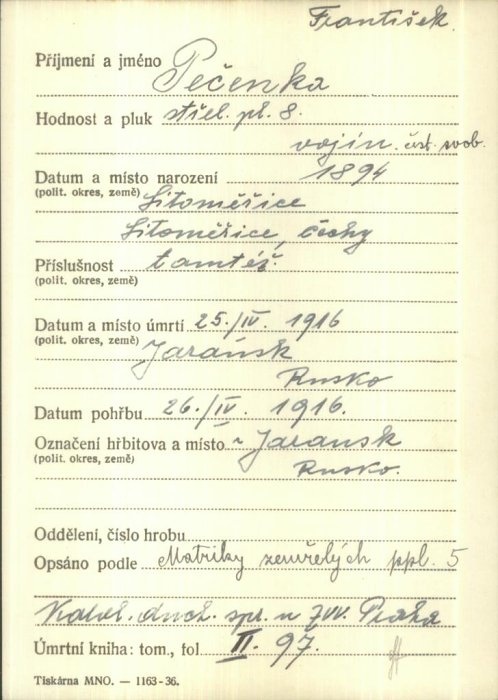 František
Příjmení a jméno Pečenka
Hodnost a pluk střel. pl. 8.
vojín. čist. svob.
Datum a místo narození 1894
(polit. okres, země) Litoměřice
Litoměřice, Čechy
Příslušnost tamtéž.
(polit. okres, země)
Datum a místo úmrtí 25./IV. 1916
(polit. okres, země) Jaraňsk
Rusko
Datum pohřbu 26./IV. 1916.
Označení hřbitova a místo Jaransk
(polit. okres, země) Rusko.
Oddělení, číslo hrobu
Opsáno podle Matriky zemřelých ppl. 5
Katol. duch. spr. u ZVV. Praha
Úmrtní kniha: tom., fol II. 97.
Tiskárna MNO. — 1163-36.